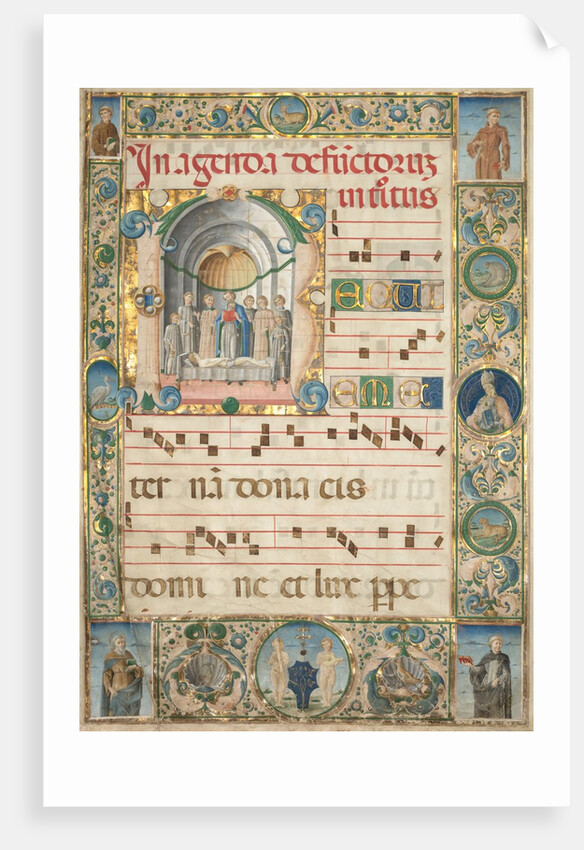 In agenda defūctoruʒ
introitus
R EQUI
EM E
ter nā dona eis
domi ne et lux ppe